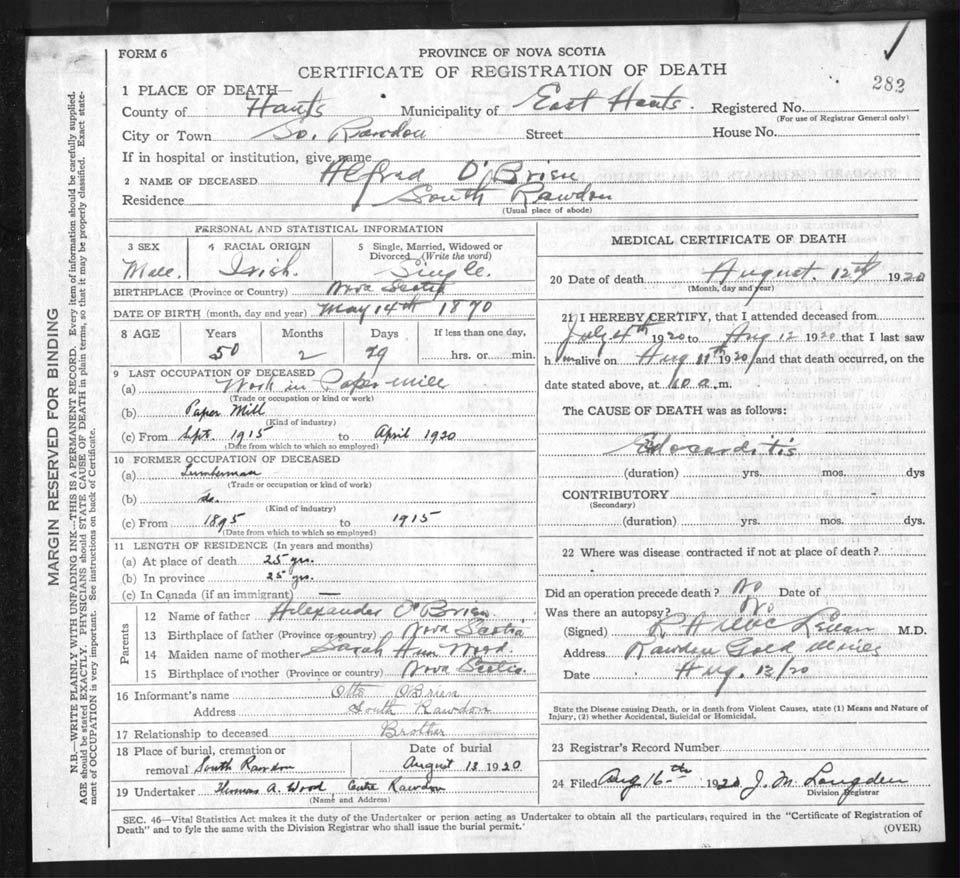 FORM 6
PROVINCE OF NOVA SCOTIA
CERTIFICATE OF REGISTRATION OF DEATH
282
1 PLACE OF DEATH—
County of Hants Municipality of East Hants. Registered No.
(For use of Registrar General only)
City or Town So. Rawdon Street House No.
If in hospital or institution, give name
2 NAME OF DECEASED Alfred O'Brien
Residence South Rawdon
(Usual place of abode)
PERSONAL AND STATISTICAL INFORMATION
3 SEX Male.
4 RACIAL ORIGIN Irish.
5 Single, Married, Widowed or Divorced (Write the word) Single.
BIRTHPLACE (Province or Country) Nova Scotia
DATE OF BIRTH (month, day and year) May 14th 1870
8 AGE Years Months Days If less than one day,
50 2 29 hrs. or min.
9 LAST OCCUPATION OF DECEASED
(a) Work in Paper mill
(Trade or occupation or kind or work)
(b) Paper Mill
(Kind of industry)
(c) From Sept. 1915 to April 1920
(Date from which to which so employed)
10 FORMER OCCUPATION OF DECEASED
(a) Lumberman
(Trade or occupation or kind of work)
(b) do.
(Kind of industry)
(c) From 1895 to 1915
(Date from which to which so employed)
11 LENGTH OF RESIDENCE (In years and months)
(a) At place of death 25 yrs.
(b) In province 25 yrs.
(c) In Canada (if an immigrant) —
Parents
12 Name of father Alexander O'Brien
13 Birthplace of father (Province or country) Nova Scotia
14 Maiden name of mother Sarah Ann Wood.
15 Birthplace of mother (Province or country) Nova Scotia
16 Informant's name Otto O'Brien
Address South Rawdon
17 Relationship to deceased Brother
18 Place of burial, cremation or Date of burial
removal South Rawdon August 13 1920
19 Undertaker Thomas A. Wood Centre Rawdon
(Name and Address)
MEDICAL CERTIFICATE OF DEATH
20 Date of death August 12th 1920
(Month, day and year)
21 I HEREBY CERTIFY, that I attended deceased from
July 4th 1920 to Aug 12 1920 that I last saw
h im alive on Aug 11th 1920 and that death occurred, on the
date stated above, at 10 a. m.
The CAUSE OF DEATH was as follows:
Edocarditis
(duration) yrs. mos. dys
CONTRIBUTORY
(Secondary)
(duration) yrs. mos. dys.
22 Where was disease contracted if not at place of death?
Did an operation precede death? No Date of
Was there an autopsy? No
(Signed) R H M.D.
Address Rawdon Gold Mines
Date Aug. 12/20
State the Disease causing Death, or in death from Violent Causes, state (1) Means and Nature of
Injury, (2) whether Accidental, Suicidal or Homicidal.
23 Registrar's Record Number
24 Filed Aug 16th 1920 J. M. Langden
Division Registrar
SEC. 46—Vital Statistics Act makes it the duty of the Undertaker or person acting as Undertaker to obtain all the particulars, required in the "Certificate of Registration of
Death" and to fyle the same with the Division Registrar who shall issue the burial permit.
(OVER)
MARGIN RESERVED FOR BINDING
N.B.—WRITE PLAINLY WITH UNFADING INK—THIS IS A PERMANENT RECORD. Every item of information should be carefully supplied.
AGE should be stated EXACTLY. PHYSICIANS should STATE CAUSE OF DEATH in plain terms, so that it may be properly classified. Exact state-
ment of OCCUPATION is very important. See instructions on back of Certificate.